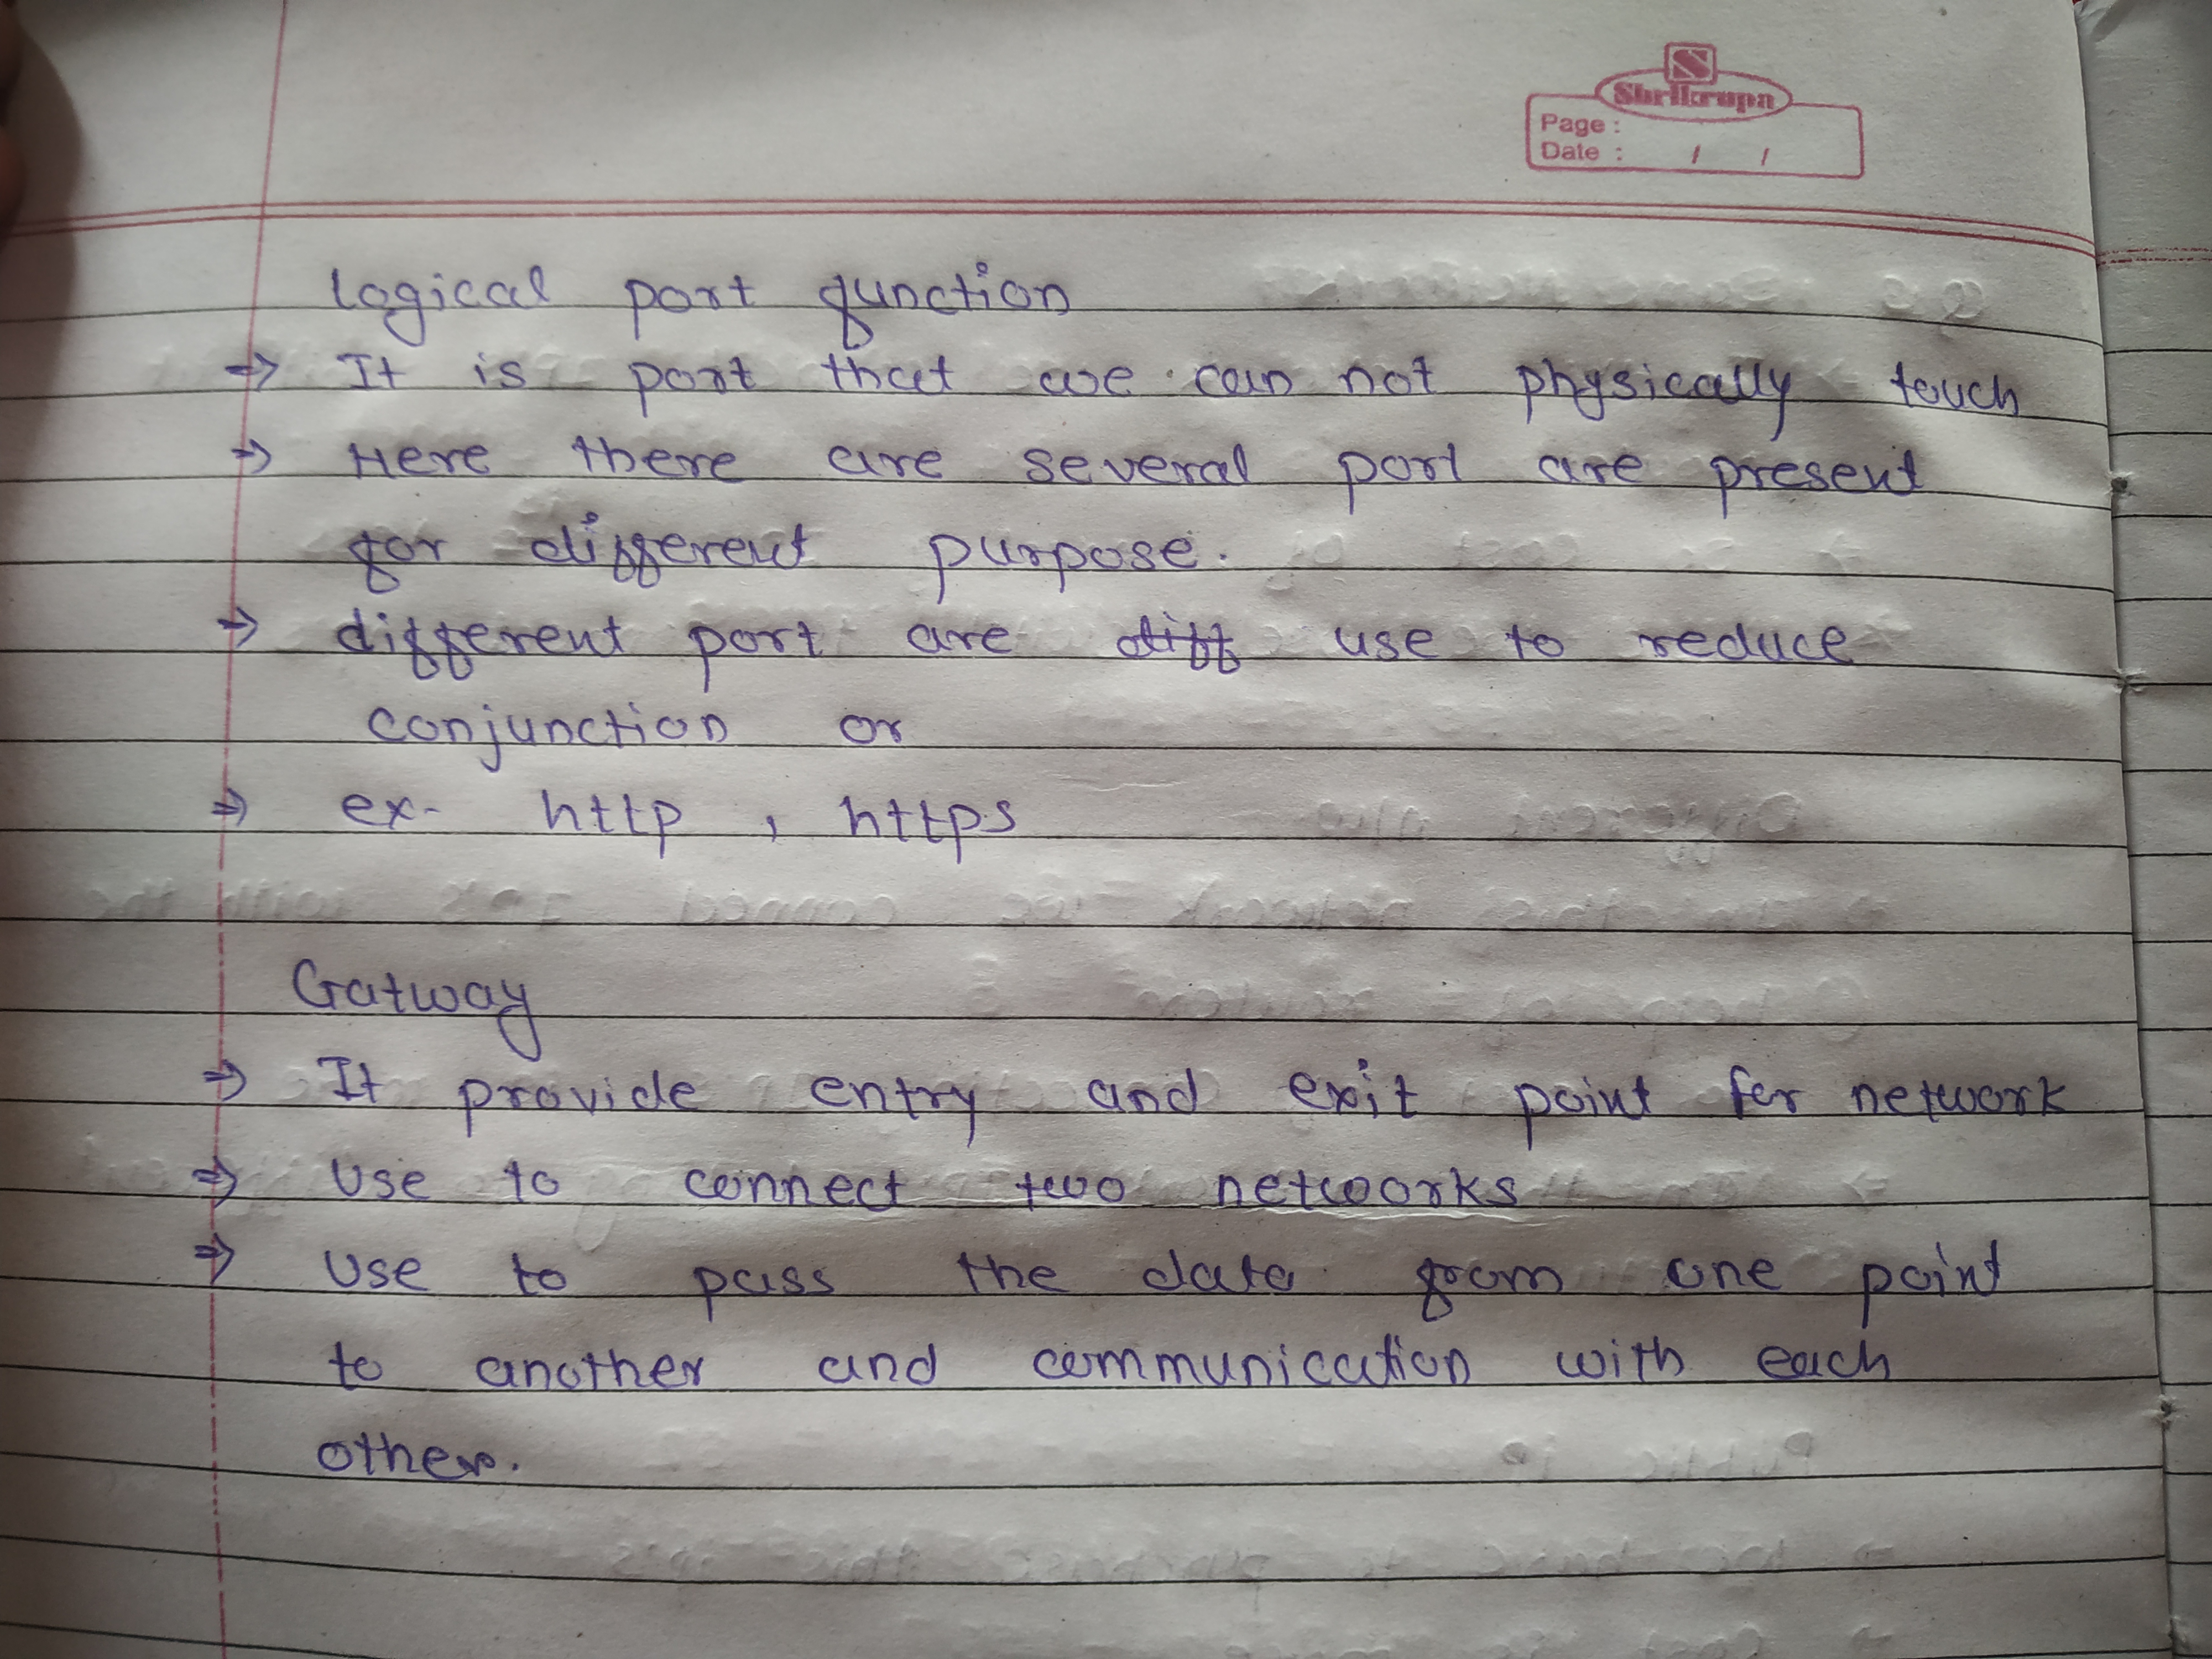 S
Shrikrupa
Page :
Date : / /
Logical port function
⇒ It is port that we can not physically touch
⇒ Here there are several port are present
for different purpose.
⇒ different port are diff use to reduce
conjunction or
⇒ ex- http , https
Gatway
⇒ It provide entry and exit point for network
⇒ Use to connect two networks
⇒ Use to pass the data from one point
to another and communication with each
other.